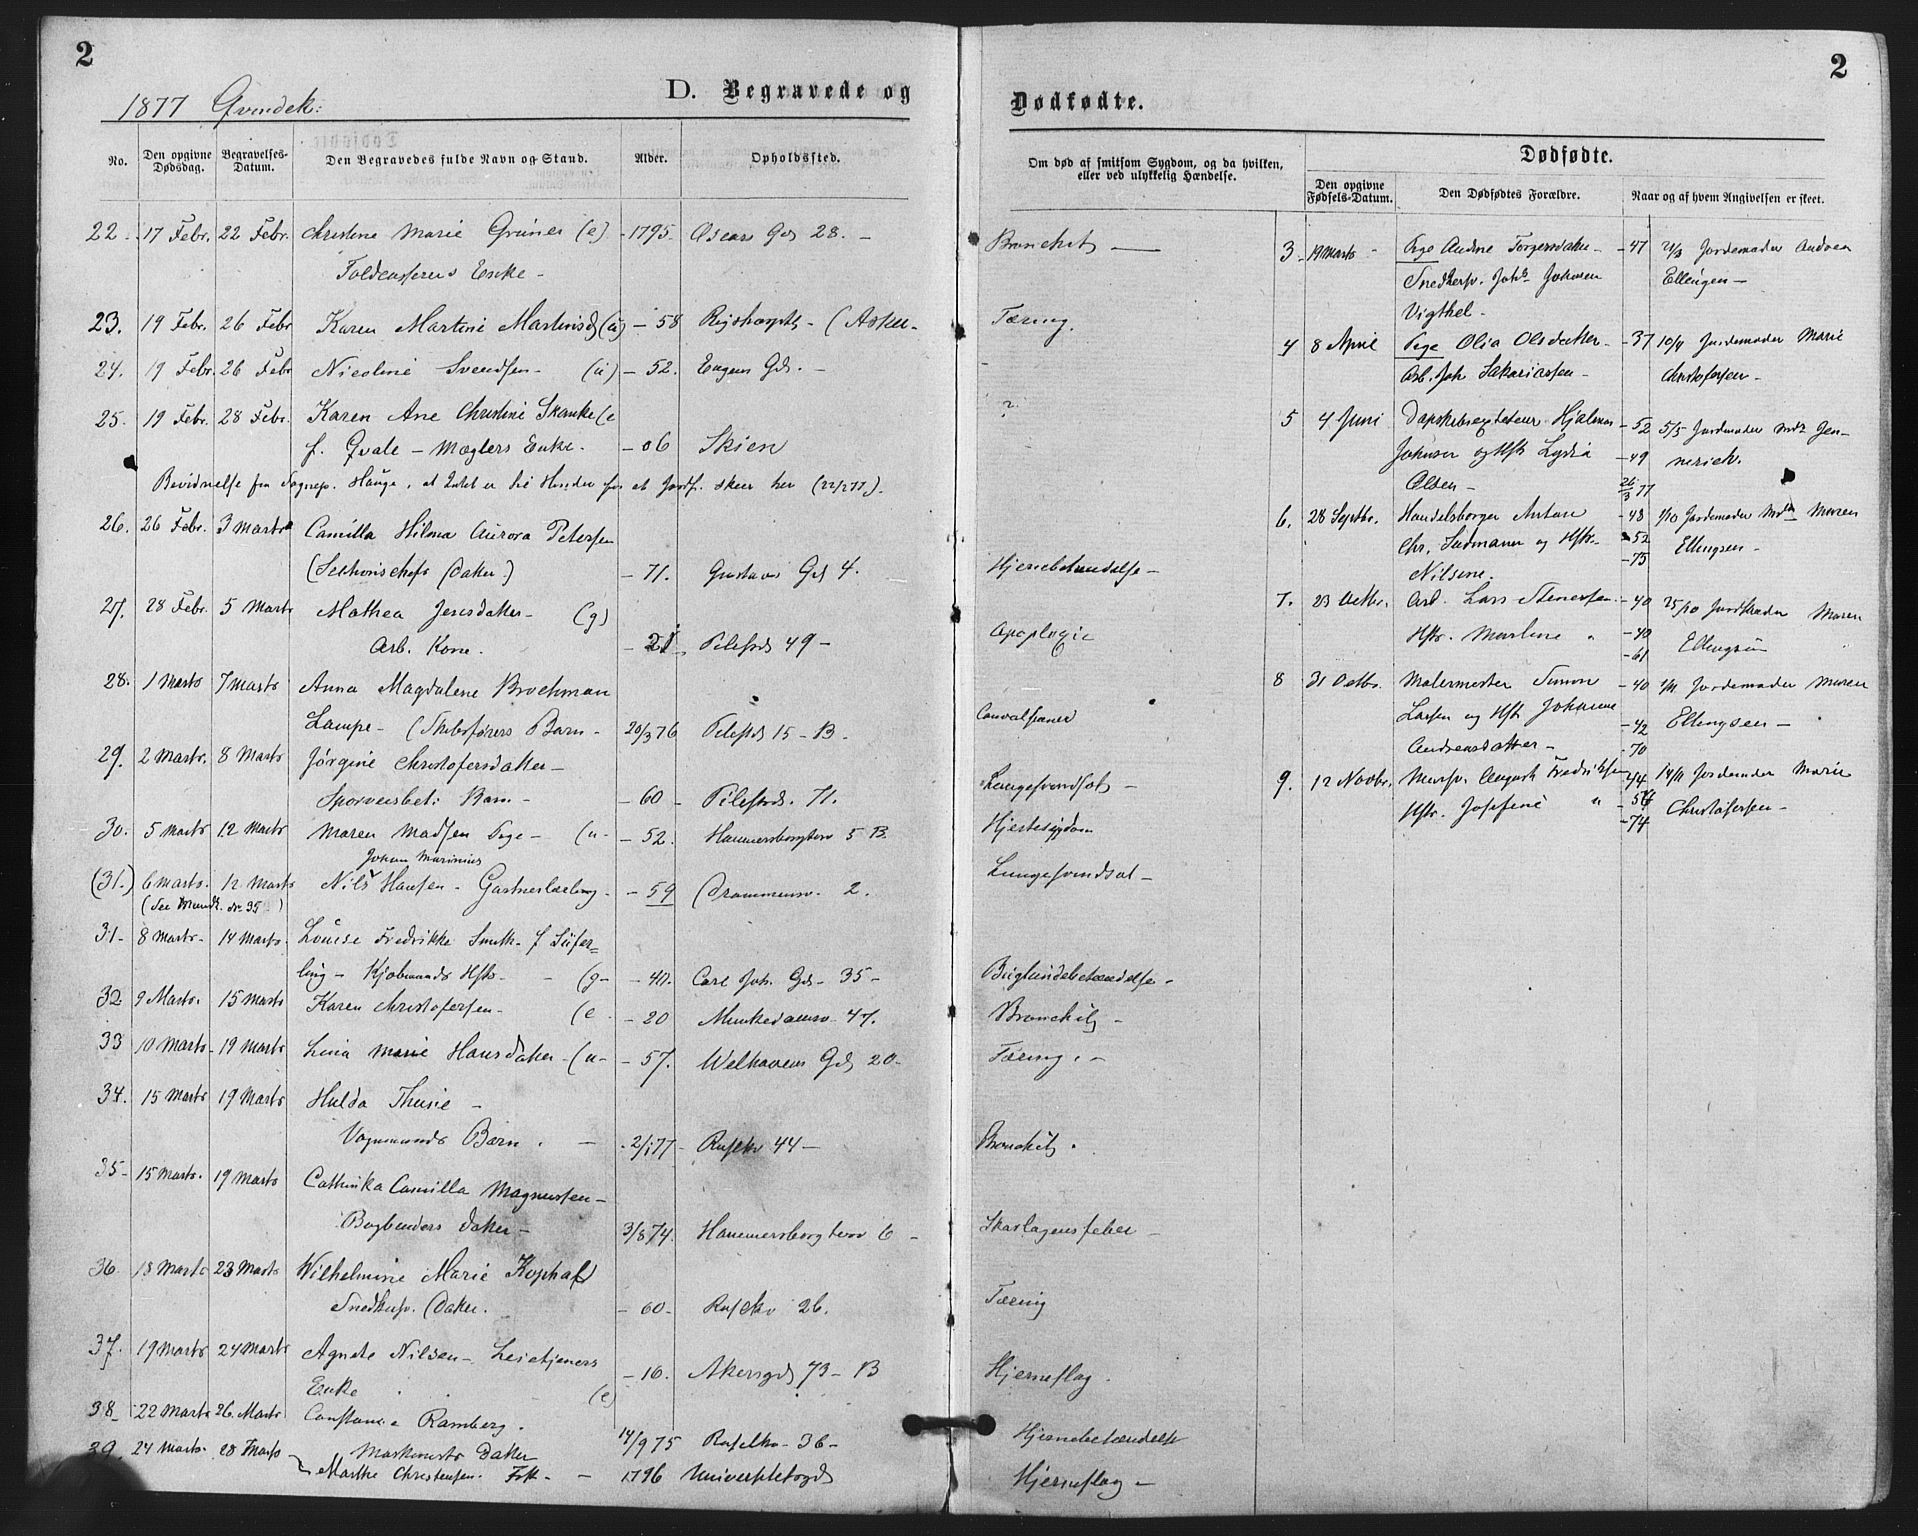 2
1877 Qvindek:
D. Begravede og
No.
Den opgivne Dødsdag.
Begravelses-Datum.
Den Begravedes fulde Navn og Stand.
Alder.
Opholdssted.
22 17 Febr. 22 Febr. Christine Marie Grüner (e) 1795 Oscars Gd 28.
Enke
23. 19 Febr. 26 Febr Karen Martine Martinsd (u) 58 Rigshospit. (Asker
24. 19 Febr. 26 Febr Nicoline Svendsen (u) 52. Eugens Gd.
25. 19 Febr. 28 Febr. Karen Ane Christine Skanke (e
f. Qvale - Mæglers Enke. 06 Skien
Bevidnelse fra Sognep. Hauge, at Intet er til Hinder for at Jordf. skeer her (22/2 77).
26. 26 Febr. 3 Marts Camilla Hilma Aurora Petersen
(Sektionschefs Datter.) 71. Gustavs Gd 4.
27. 28 Febr. 5 Marts Mathea Jensdatter (g)
Arb. Kone. 21 Pilestrd 49
28. 1 Marts 7 Marts Anna Magdalene Brochman
Lampe (Skibsførers Barn 20/3 76 Pilestrd 15 B.
29. 2 Marts. 8 Marts Jørgine Christofersdatter
Sporveisbet. Barn 60 Pilestrd. 71.
30. 5 Marts 12 Marts Maren Madsen Pige (u 52. Hammersborgtorv 5 B.
Johan Marinius
(31.) 6 Marts. 12 Marts Nils Hansen Gartnerlærling 59 Drammensv. 2.
(See Mandk. No. 35)
31. 8 Marts 14 Marts. Louise Fredrikke Smith f
ling - Kjøbmands Hstr. (g 40. Carl Joh. Gd 35
32 9 Marts. 15 Marts Karen Christofersen (e 20 Munkedamsv 47.
33 10 Marts 19 Marts Lina Marie Hansdatter (u 57. Welhavens Gd 20
34. 15 Marts 19 Marts Hulda
Vognmands Barn. 2/1 77 Rosenkr 44
35 15 Marts. 19 Marts Cathinka Camilla Magnussen
Bogbinders Datter 3/8 74. Hammersborgtorv 6
36 18 Marts 23 Marts Wilhelmine Marie
Snedkersv. Datter. 60 Rosenkr 26.
37. 19 Marts 24 Marts Agnete Nilsen Leietjeners
Enke (e) 16. Akersgd 73 B
38 22 Marts 26. Marts Constance Ramberg.
Maskinists Datter 14/9 75 Rosenkr. 36
39. 24 Marts. 28 Marts Marthe Christensen. 1796 Universitetsgd
2
Dødfødte.
Om død af smitsom Sygdom, og da hvilken, eller ved ulykkelig Hændelse.
Dødfødte.
Den opgivne Fødsels-Datum.
Den Dødfødtes Forældre.
Naar og af hvem Angivelsen er skeet.
Bronchit
Tæring.
?
Hjernebetændelse
Apoplexie
Convulsioner
Lungesvindsot
Hjertesygdom
Lungesvindsot
Buglindebetændelse
Bronchit
Tæring.
Bronchit.
Skarlagensfeber
Tæring
Hjerneslag.
Hjernebetændelse
Hjerneslag
3 19 Marts Pige Andrine Torgersdatter 47 21/3 Jordemoder Andrea
Snedkersv. Johs Johnsen Ellingsen
Vigthel
4 8 April Pige Olia Olsdatter 37 10/4 Jordemoder Marie
Arb. Joh Sakariassen Christofersen
5 4 Juni Hjalmar 52 5/5 Jordemoder
Johnsen og Hst Lydia 49
Olsen 26/3 77
6. 28 Septbr. Handelsborger Anton 48 1/10 Jordemoder Maren
Chr. og Hstr. 52 Ellingsen
Nilsine. 75
7. 23 Octbr. Arb. Lars Stenersen 40 25/10 Jordemoder Maren
Hstr. Martine " 40 Ellingsen
61
8 31 Octbr. Malermester Simon 40 1/11 Jordemoder Maren
Larsen og Hst Johanne 42 Ellingsen
Andreasdatter 70
9. 12 Novbr. Mursv. August Fredriksen 44 14/11 Jordemoder Marie
Hstr. Josefine " 54 Christofersen
74